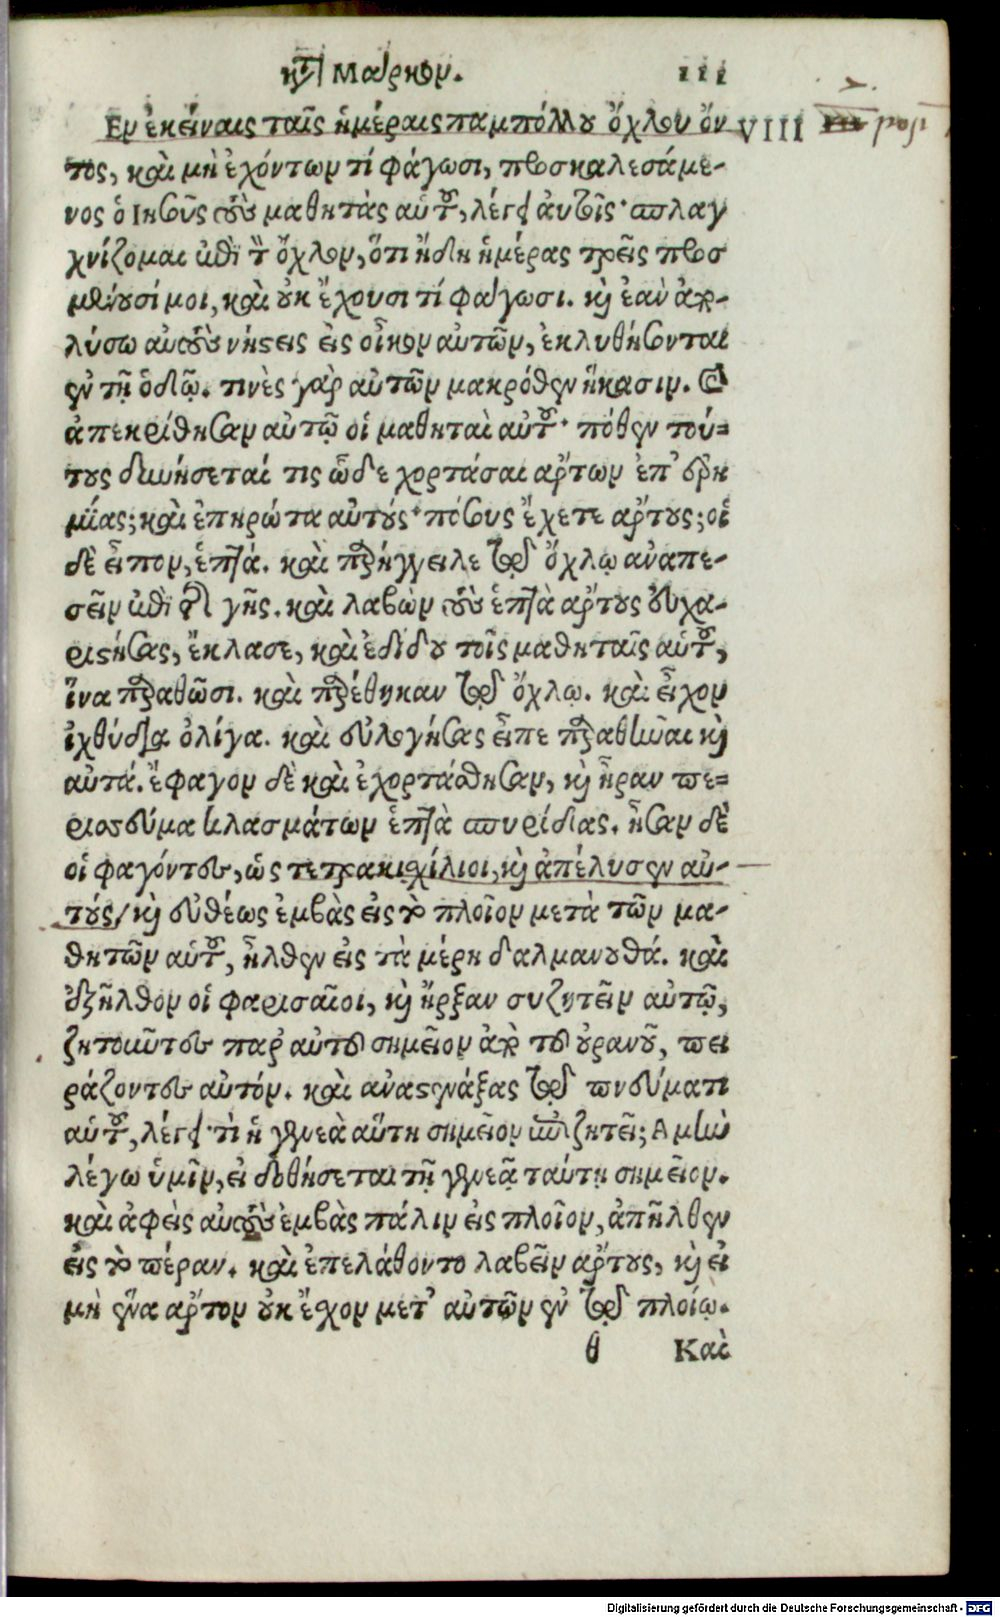 κτ Μάρκον. 111
Εν ἐκείναις ταῖς ἡμέραις παμπόλλου ὄχλου ὄν VIII
τος, καὶ μὴ ἐχόντων τί φάγωσι, προσκαλεσάμε-
νος ὁ Ιησοῦς τοὺς μαθητὰς αὑτοῦ, λέγει αὐτοῖς· σπλαγ
χνίζομαι ἐπὶ τὸν ὄχλον, ὅτι ἤδη ἡμέρας τρεῖς προσ
μένουσί μοι, καὶ οὐκ ἔχουσι τί φάγωσι. καὶ ἐὰν ἀπο-
λύσω αὐτοὺς νήστεις εἰς οἶκον αὐτῶν, ἐκλυθήσονται
ἐν τῇ ὁδῷ. τινὲς γὰρ αὐτῶν μακρόθεν ἥκασιν. καὶ
ἀπεκρίθησαν αὐτῷ οἱ μαθηταὶ αὐτοῦ· πόθεν τού-
τους δυνήσεταί τις ὧδε χορτάσαι ἄρτων ἐπ' ἐρη
μίας; καὶ ἐπηρώτα αὐτούς· πόσους ἔχετε ἄρτους; οἱ
δὲ εἶπον, ἑπτά. καὶ παρήγγειλε τῷ ὄχλῳ ἀναπε-
σεῖν ἐπὶ τῆς γῆς. καὶ λαβὼν τοὺς ἑπτὰ ἄρτους εὐχα-
ριστήσας, ἔκλασε, καὶ ἐδίδου τοῖς μαθηταῖς αὑτοῦ,
ἵνα παραθῶσι. καὶ παρέθηκαν τῷ ὄχλῳ. καὶ εἶχον
ἰχθύδια ὀλίγα. καὶ εὐλογήσας εἶπε παραθεῖναι καὶ
αὐτά. ἔφαγον δὲ καὶ ἐχορτάσθησαν, καὶ ἦραν πε-
ρισσεύματα κλασμάτων ἑπτὰ σπυρίδας. ἦσαν δὲ
οἱ φαγόντες, ὡς τετρακισχίλιοι, καὶ ἀπέλυσεν αὐ-
τούς, καὶ εὐθέως ἐμβὰς εἰς τὸ πλοῖον μετὰ τῶν μα-
θητῶν αὑτοῦ, ἦλθεν εἰς τὰ μέρη δαλμανουθά. καὶ
ἐξῆλθον οἱ φαρισαῖοι, καὶ ἤρξαν συζητεῖν αὐτῷ,
ζητοῦντες παρ' αὐτοῦ σημεῖον ἀπὸ τοῦ οὐρανοῦ, πει
ράζοντες αὐτόν. καὶ ἀναστενάξας τῷ πνεύματι
αὑτοῦ, λέγει· τὶ ἡ γενεὰ αὕτη σημεῖον ἐπιζητεῖ; Αμὴν
λέγω ὑμῖν, εἰ δοθήσεται τῇ γενεᾷ ταύτῃ σημεῖον.
καὶ ἀφεὶς αὐτοὺς ἐμβὰς πάλιν εἰς πλοῖον, ἀπῆλθεν
εἰς τὸ πέραν. καὶ ἐπελάθοντο λαβεῖν ἄρτους, καὶ εἰ
μὴ ἕνα ἄρτον οὐκ εἶχον μετ' αὐτῶν ἐν τῷ πλοίῳ.
θ Καὶ
Digitalisierung gefördert durch die Deutsche Forschungsgemeinschaft - DFG